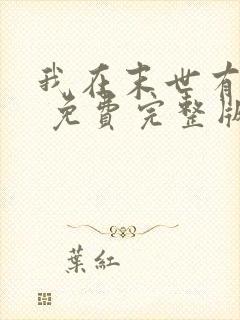 我在末世有
免費完整版
葉紅